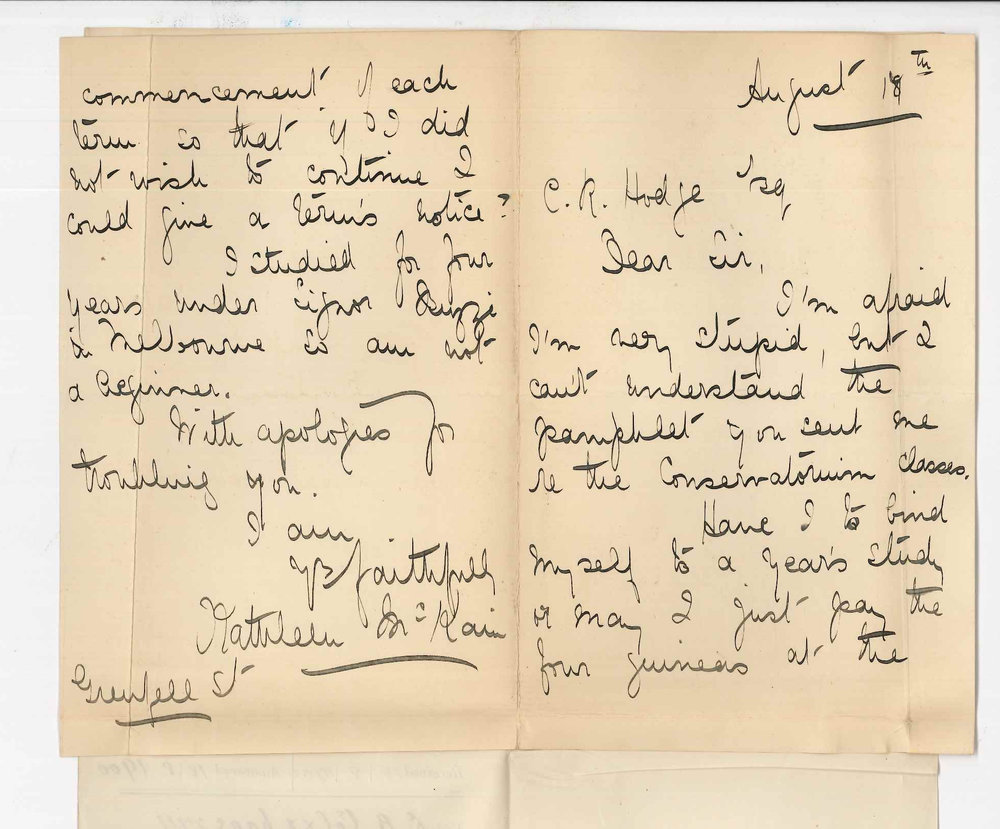 August 18th
C. R. Hodge Esq
Dear Sir,
I'm afraid
I'm very stupid, but I
can't understand the
pamphlet you sent me
re the Conservatorium Classes.
Have I to bind
myself to a year's study
or may I just pay the
four guineas at the
commencement of each
term so that if I did
not wish to continue I
could give a term's notice?
I studied for four
years under Signor
in Melbourne so am not
a beginner.
With apologies for
troubling you.
I am
Yrs faithfully
Kathleen McKain
Grenfell St